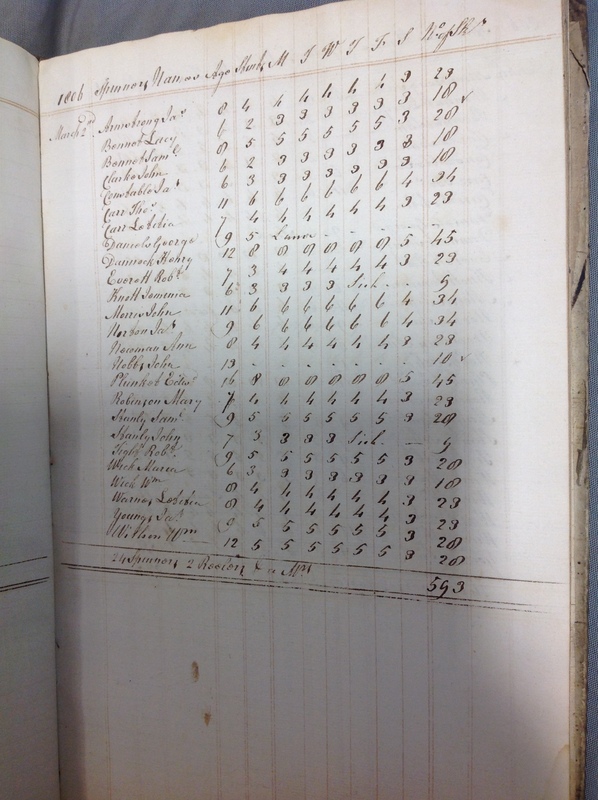 1806 Spinners Names Age Stint M T W T F S No of Sks
March 2nd Armstrong Jas 8 4 4 4 4 4 4 3 23
Bennet Lucy 6 2 3 3 3 3 3 3 18
Bennet Saml 8 5 5 5 5 5 5 3 28
Clarke John 6 2 3 3 3 3 3 3 18
Constable Jas 6 3 3 3 3 3 3 3 18
Carr Thos 11 6 6 6 6 6 6 4 34
Carr Letitia 7 4 4 4 4 4 4 3 23
Daniels George 9 5 Lame - - - - -
Dannock Henry 12 8 8 8 8 8 8 5 45
Everett Robt 7 3 4 4 4 4 4 3 23
Knott Jemima 6 3 3 3 3 Sick - - 9
Morris John 11 6 6 6 6 6 6 4 34
Norton Jas 9 6 6 6 6 6 6 4 34
Newman Ann 8 4 4 4 4 4 4 3 23
Nobbs John 13 - - - - - - - 10
Plunket Edwd 16 8 8 8 8 8 8 5 45
Robinson Mary 7 4 4 4 4 4 4 3 23
Stanly Saml 9 5 5 5 5 5 5 3 28
Stanly John 7 3 3 3 3 Sick — 9
Robt 9 5 5 5 5 5 5 3 28
Wick Maria 6 3 3 3 3 3 3 3 18
Wick Wm 8 4 4 4 4 4 4 3 23
Warnes Letitia 8 4 4 4 4 4 4 3 23
Young Jas 9 5 5 5 5 5 5 3 28
Withers Wm 12 5 5 5 5 5 5 3 28
24 Spinners 2 & a
593